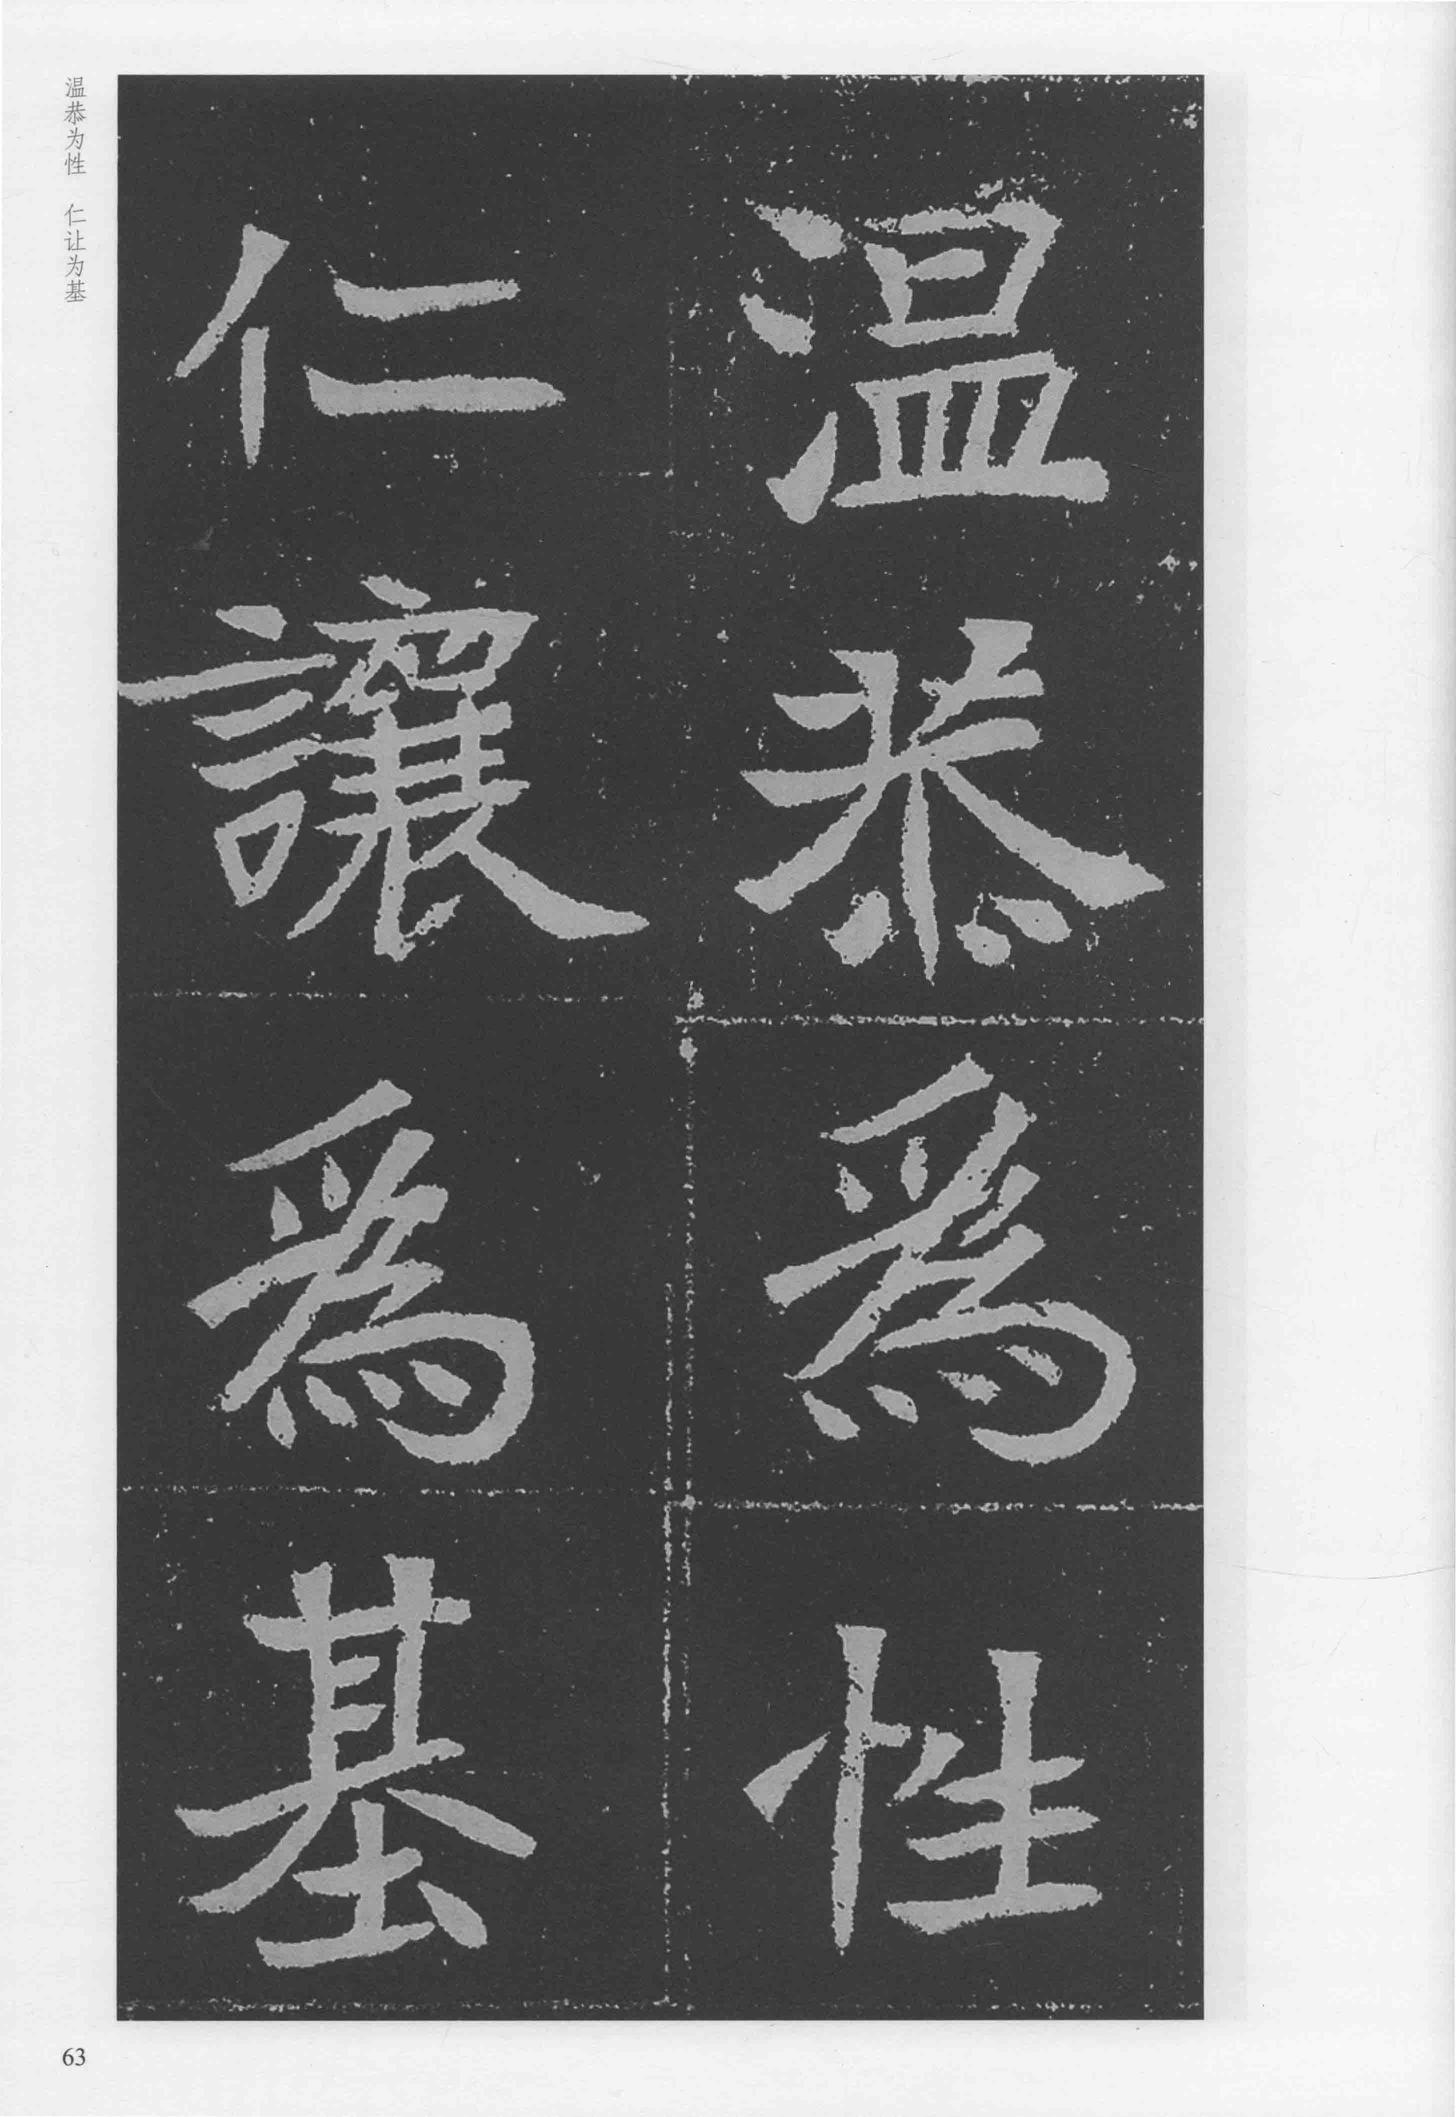 温恭為性
仁讓為基
温恭为性 仁让为基
63